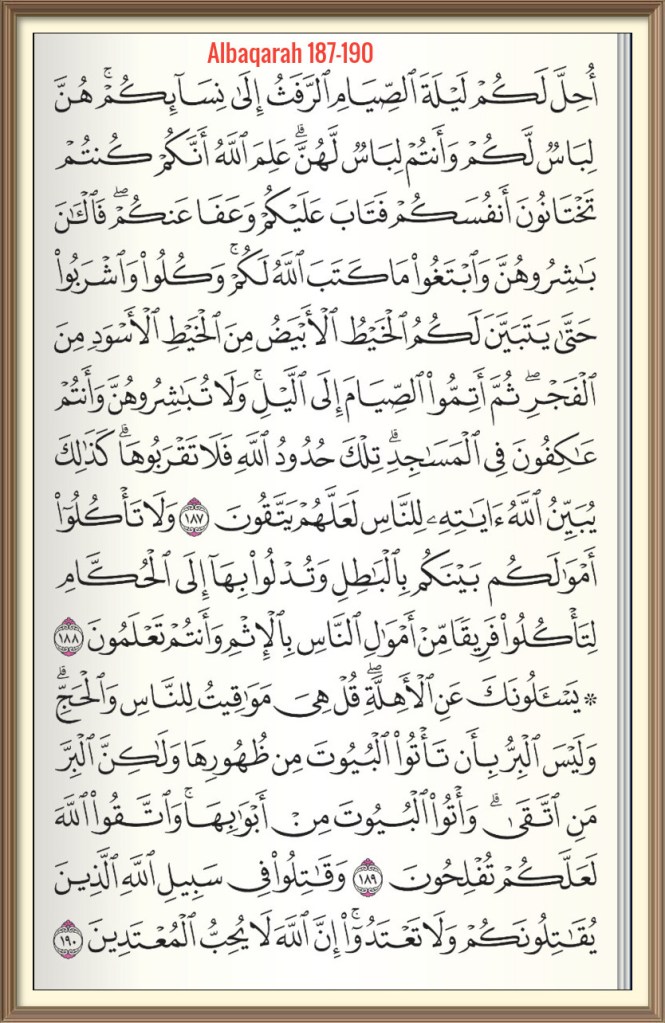 Albaqarah 187-190
أُحِلَّ لَكُمْ لَيْلَةَ ٱلصِّيَامِ ٱلرَّفَثُ إِلَىٰ نِسَآئِكُمْ ۚ هُنَّ
لِبَاسٌ لَّكُمْ وَأَنتُمْ لِبَاسٌ لَّهُنَّ ۗ عَلِمَ ٱللَّهُ أَنَّكُمْ كُنتُمْ
تَخْتَانُونَ أَنفُسَكُمْ فَتَابَ عَلَيْكُمْ وَعَفَا عَنكُمْ ۖ فَٱلْـَٰٔنَ
بَـٰشِرُوهُنَّ وَٱبْتَغُوا۟ مَا كَتَبَ ٱللَّهُ لَكُمْ ۚ وَكُلُوا۟ وَٱشْرَبُوا۟
حَتَّىٰ يَتَبَيَّنَ لَكُمُ ٱلْخَيْطُ ٱلْأَبْيَضُ مِنَ ٱلْخَيْطِ ٱلْأَسْوَدِ مِنَ
ٱلْفَجْرِ ۖ ثُمَّ أَتِمُّوا۟ ٱلصِّيَامَ إِلَى ٱلَّيْلِ ۚ وَلَا تُبَـٰشِرُوهُنَّ وَأَنتُمْ
عَـٰكِفُونَ فِى ٱلْمَسَـٰجِدِ ۗ تِلْكَ حُدُودُ ٱللَّهِ فَلَا تَقْرَبُوهَا ۗ كَذَٰلِكَ
يُبَيِّنُ ٱللَّهُ ءَايَـٰتِهِۦ لِلنَّاسِ لَعَلَّهُمْ يَتَّقُونَ ١٨٧ وَلَا تَأْكُلُوٓا۟
أَمْوَٰلَكُم بَيْنَكُم بِٱلْبَـٰطِلِ وَتُدْلُوا۟ بِهَآ إِلَى ٱلْحُكَّامِ
لِتَأْكُلُوا۟ فَرِيقًا مِّنْ أَمْوَٰلِ ٱلنَّاسِ بِٱلْإِثْمِ وَأَنتُمْ تَعْلَمُونَ ١٨٨
۞ يَسْـَٔلُونَكَ عَنِ ٱلْأَهِلَّةِ ۖ قُلْ هِىَ مَوَٰقِيتُ لِلنَّاسِ وَٱلْحَجِّ ۗ
وَلَيْسَ ٱلْبِرُّ بِأَن تَأْتُوا۟ ٱلْبُيُوتَ مِن ظُهُورِهَا وَلَـٰكِنَّ ٱلْبِرَّ
مَنِ ٱتَّقَىٰ ۗ وَأْتُوا۟ ٱلْبُيُوتَ مِنْ أَبْوَٰبِهَا ۚ وَٱتَّقُوا۟ ٱللَّهَ
لَعَلَّكُمْ تُفْلِحُونَ ١٨٩ وَقَـٰتِلُوا۟ فِى سَبِيلِ ٱللَّهِ ٱلَّذِينَ
يُقَـٰتِلُونَكُمْ وَلَا تَعْتَدُوٓا۟ ۚ إِنَّ ٱللَّهَ لَا يُحِبُّ ٱلْمُعْتَدِينَ ١٩٠